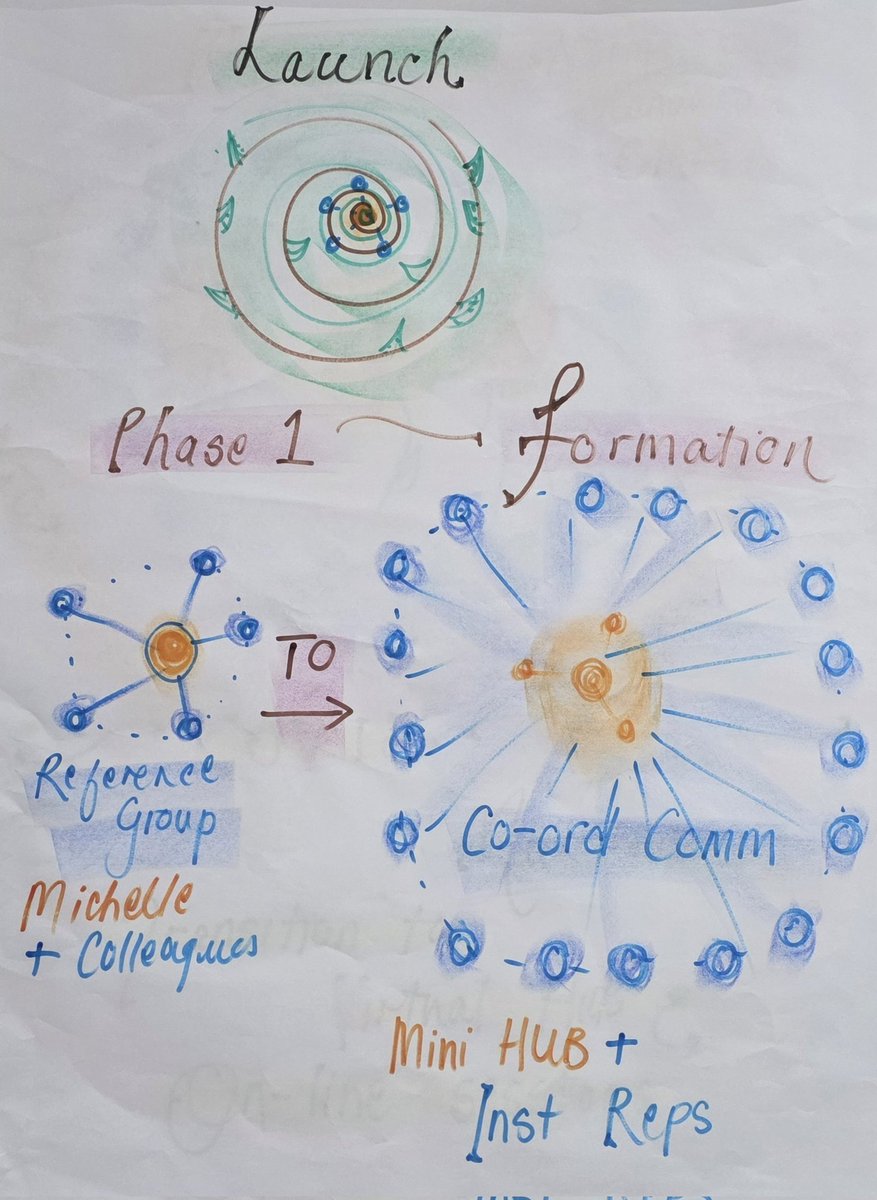 Launch
Phase 1 Formation
TO
Reference
Group
Michelle
+ Colleagues
Co-ord Comm
Mini HUB +
Inst Reps